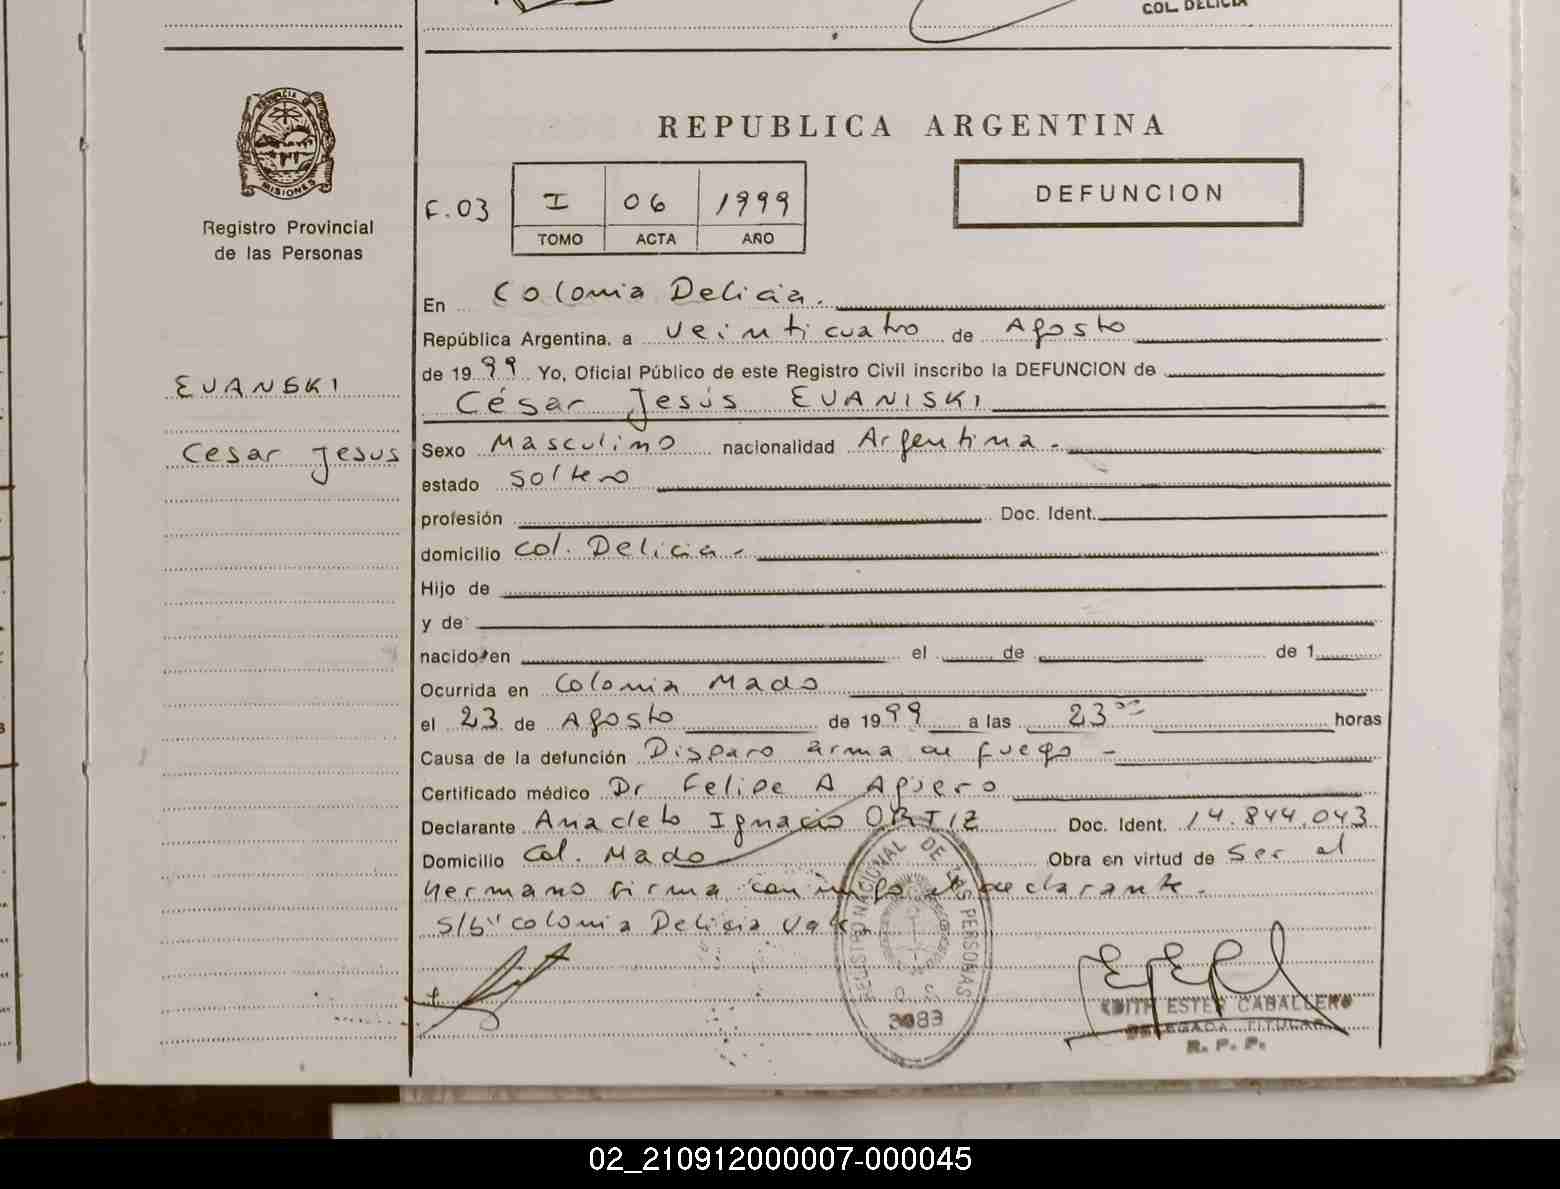 COL. DELICIA
PROVINCIA D
MISIONES
Registro Provincial
de las Personas
REPUBLICA ARGENTINA
F.03 I 06 1999
TOMO ACTA AÑO
DEFUNCION
En Colonia Delicia.
República Argentina, a veinticuatro de Agosto
de 1999 Yo, Oficial Público de este Registro Civil inscribo la DEFUNCION de
EVANSKI
César Jesús EVANISKI
Cesar Jesus
Sexo Masculino nacionalidad Argentina.
estado Soltero
profesión Doc. Ident.
domicilio Col. Delicia-
Hijo de
y de
nacido en el de de 1
Ocurrida en Colonia Mado
el 23 de Agosto de 1999 a las 23 00 horas
Causa de la defunción Disparo arma de fuego -
Certificado médico Dr Felipe A Agüero
Declarante Anacleto Ignacio ORTIZ Doc. Ident. 14.844.043
Domicilio Col. Mado Obra en virtud de Ser el
hermano firma conmigo el declarante.
S/b" Colonia Delicia Vale
REGISTRO NACIONAL DE LAS PERSONAS
3083
EDITH ESTER CABALLERO
DELEGADA TITULAR
R. P. P.
02_210912000007-000045